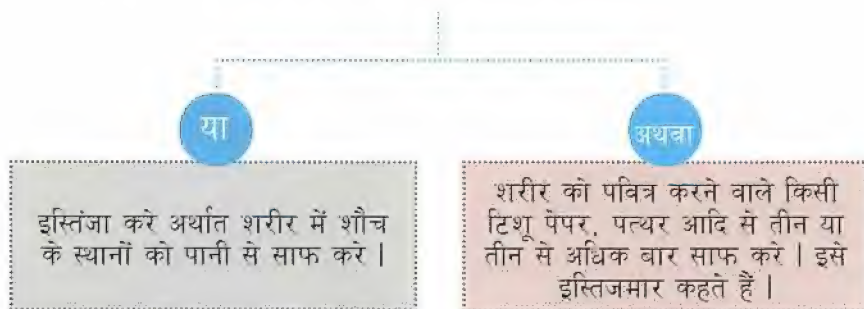 या
अथवा
इस्तिंजा करे अर्थात शरीर में शौच
के स्थानों को पानी से साफ करे |
शरीर को पवित्र करने वाले किसी
टिशू पेपर, पत्थर आदि से तीन या
तीन से अधिक बार साफ करे | इसे
इस्तिजमार कहते हैं |